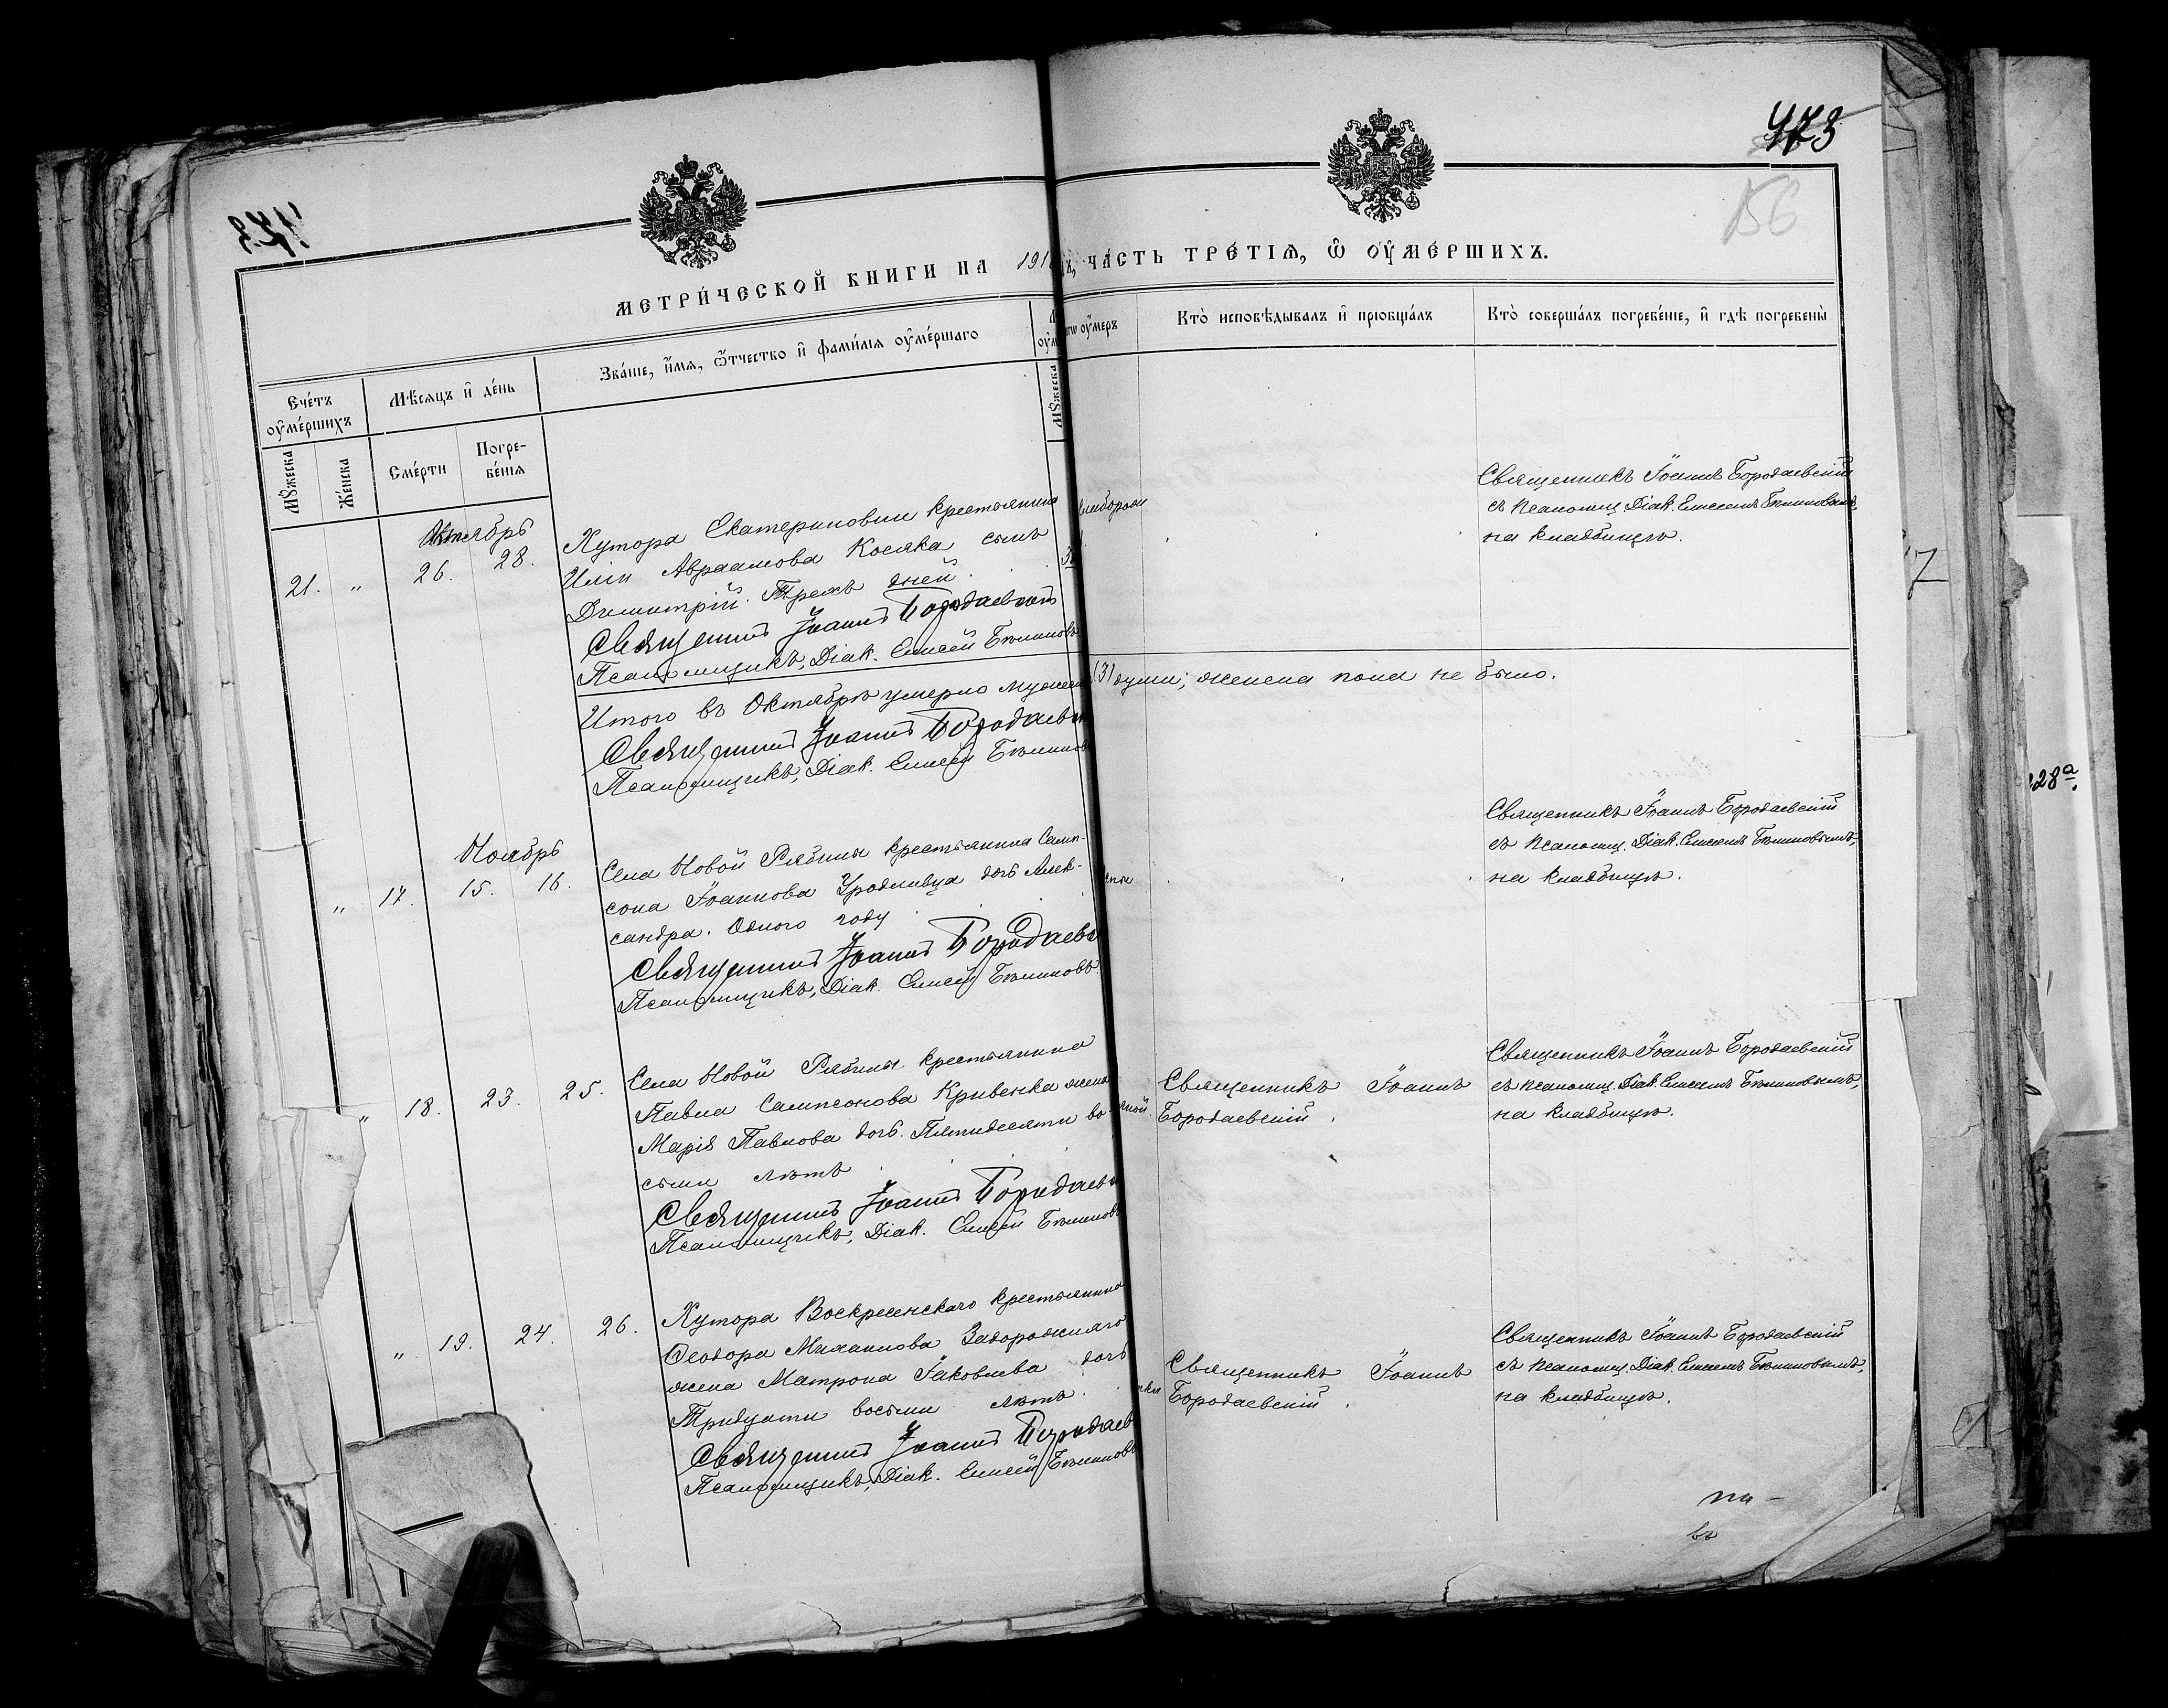 473
156
МЕТРИ́ЧЕСКОЙ КНИГИ НА 191
ЧА́СТЬ ТРЕ́ТІѦ, Ѽ ОУ҆МЕ́РШИХЪ.
Сче́тъ оу҆ме́ршихъ
Мѣ́сяцъ и҆ де́нь
Зва́нїе, и҆́мѧ, ѻ҆́тчество и҆ фами́лїѧ оу҆ме́ршаго
оу҆́меръ
Кто̀ исповѣ́дывалъ и҆ прїобща́лъ
Кто̀ соверша́лъ погребе́нїе, и҆ гдѣ̀ погребены̀
Мꙋ́жеска
Же́нска
Сме́рти
Погребе́нїѧ
Мꙋ́жеска
Октябрь
21. " 26. 28.
Хутора Екатериновки крестьянина
Иліи Авраамова Косяка сынъ
Димитрій. Трехъ дней.
Священникъ Іоаннъ Бородаевскій
Псаломщикъ, Діак. Елисей
Священникъ Іоаннъ Бородаевскій
съ псаломщ. Діак. Елисеемъ
на кладбищѣ.
Итого въ Октябрѣ умерло мужеска (3) души; женска пола не было.
Священникъ Іоаннъ Бородаевскій
Псаломщикъ, Діак. Елисей
Ноябрь
" 17. 15. 16.
Села Новой Рябины крестьянина Самп-
сона Іоаннова Уродливца дочь Алек-
сандра. Одного году
Священникъ Іоаннъ Бородаевс
Псаломщикъ, Діак. Елисей
Священникъ Іоаннъ Бородаевскій
съ псаломщ. Діак. Елисеемъ
на кладбищѣ.
" 18. 23. 25.
Села Новой Рябины крестьянина
Павла Сампсонова Кривенка жена
Марія Павлова дочь. Пятидесяти во-
сьми лѣтъ
Священникъ Іоаннъ Бородаевс
Псаломщикъ, Діак. Елисей
Священникъ Іоаннъ
Бородаевскій.
Священникъ Іоаннъ Бородаевскій
съ псаломщ. Діак. Елисеемъ
на кладбищѣ.
" 19. 24. 26.
Хутора Воскресенскаго крестьянина
Ѳеодора Михаилова Задорожнаго
жена Матрона Іаковлева дочь
Тридцати восьми лѣтъ.
Священникъ Іоаннъ Бородаев
Псаломщикъ, Діак. Елисей
Священникъ Іоаннъ
Бородаевскій.
Священникъ Іоаннъ Бородаевскій
съ псаломщ. Діак. Елисеемъ
на кладбищѣ.
28а.